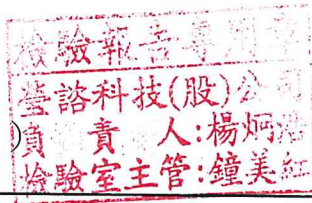 檢驗報告專用章
瑩諮科技(股)公司
負責人:楊炯
檢驗室主管:鐘美紅